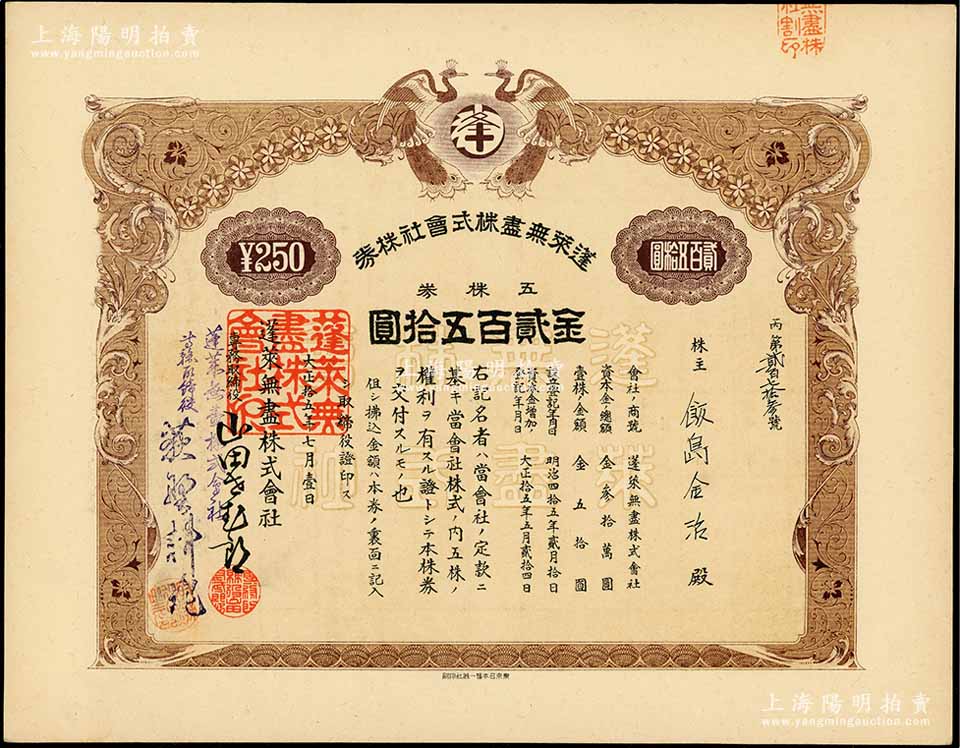 上海陽明拍賣
www.yangmingauction.com
無盡株
社割印
蓬萊無盡株式會社株券
¥250
貳百五拾圓
五株券
金貳百五拾圓
丙第貳百七拾參號
株主 飯島金治 殿
會社ノ商號 蓬萊無盡株式會社
資本金ノ總額 金參拾萬圓
壹株ノ金額 金五拾圓
設立登記年月日 明治四拾五年貳月拾日
資本金増加ノ登記年月日 大正拾五年五月貳拾四日
右記名者ハ當會社ノ定款ニ
基キ當會社株式ノ內五株ノ
權利ヲ有スル證トシテ本株券
ヲ交付スルモノ也
但シ拂込金額ハ本券ノ裏面ニ記入
シ取締役證印ス
大正拾五年七月壹日
蓬萊無盡株式會社
專務取締役
蓬萊無盡株式會社
蓬萊無
盡株式
會社印
蓬萊無盡株式會社
上海陽明拍賣
www.yangmingauction.com